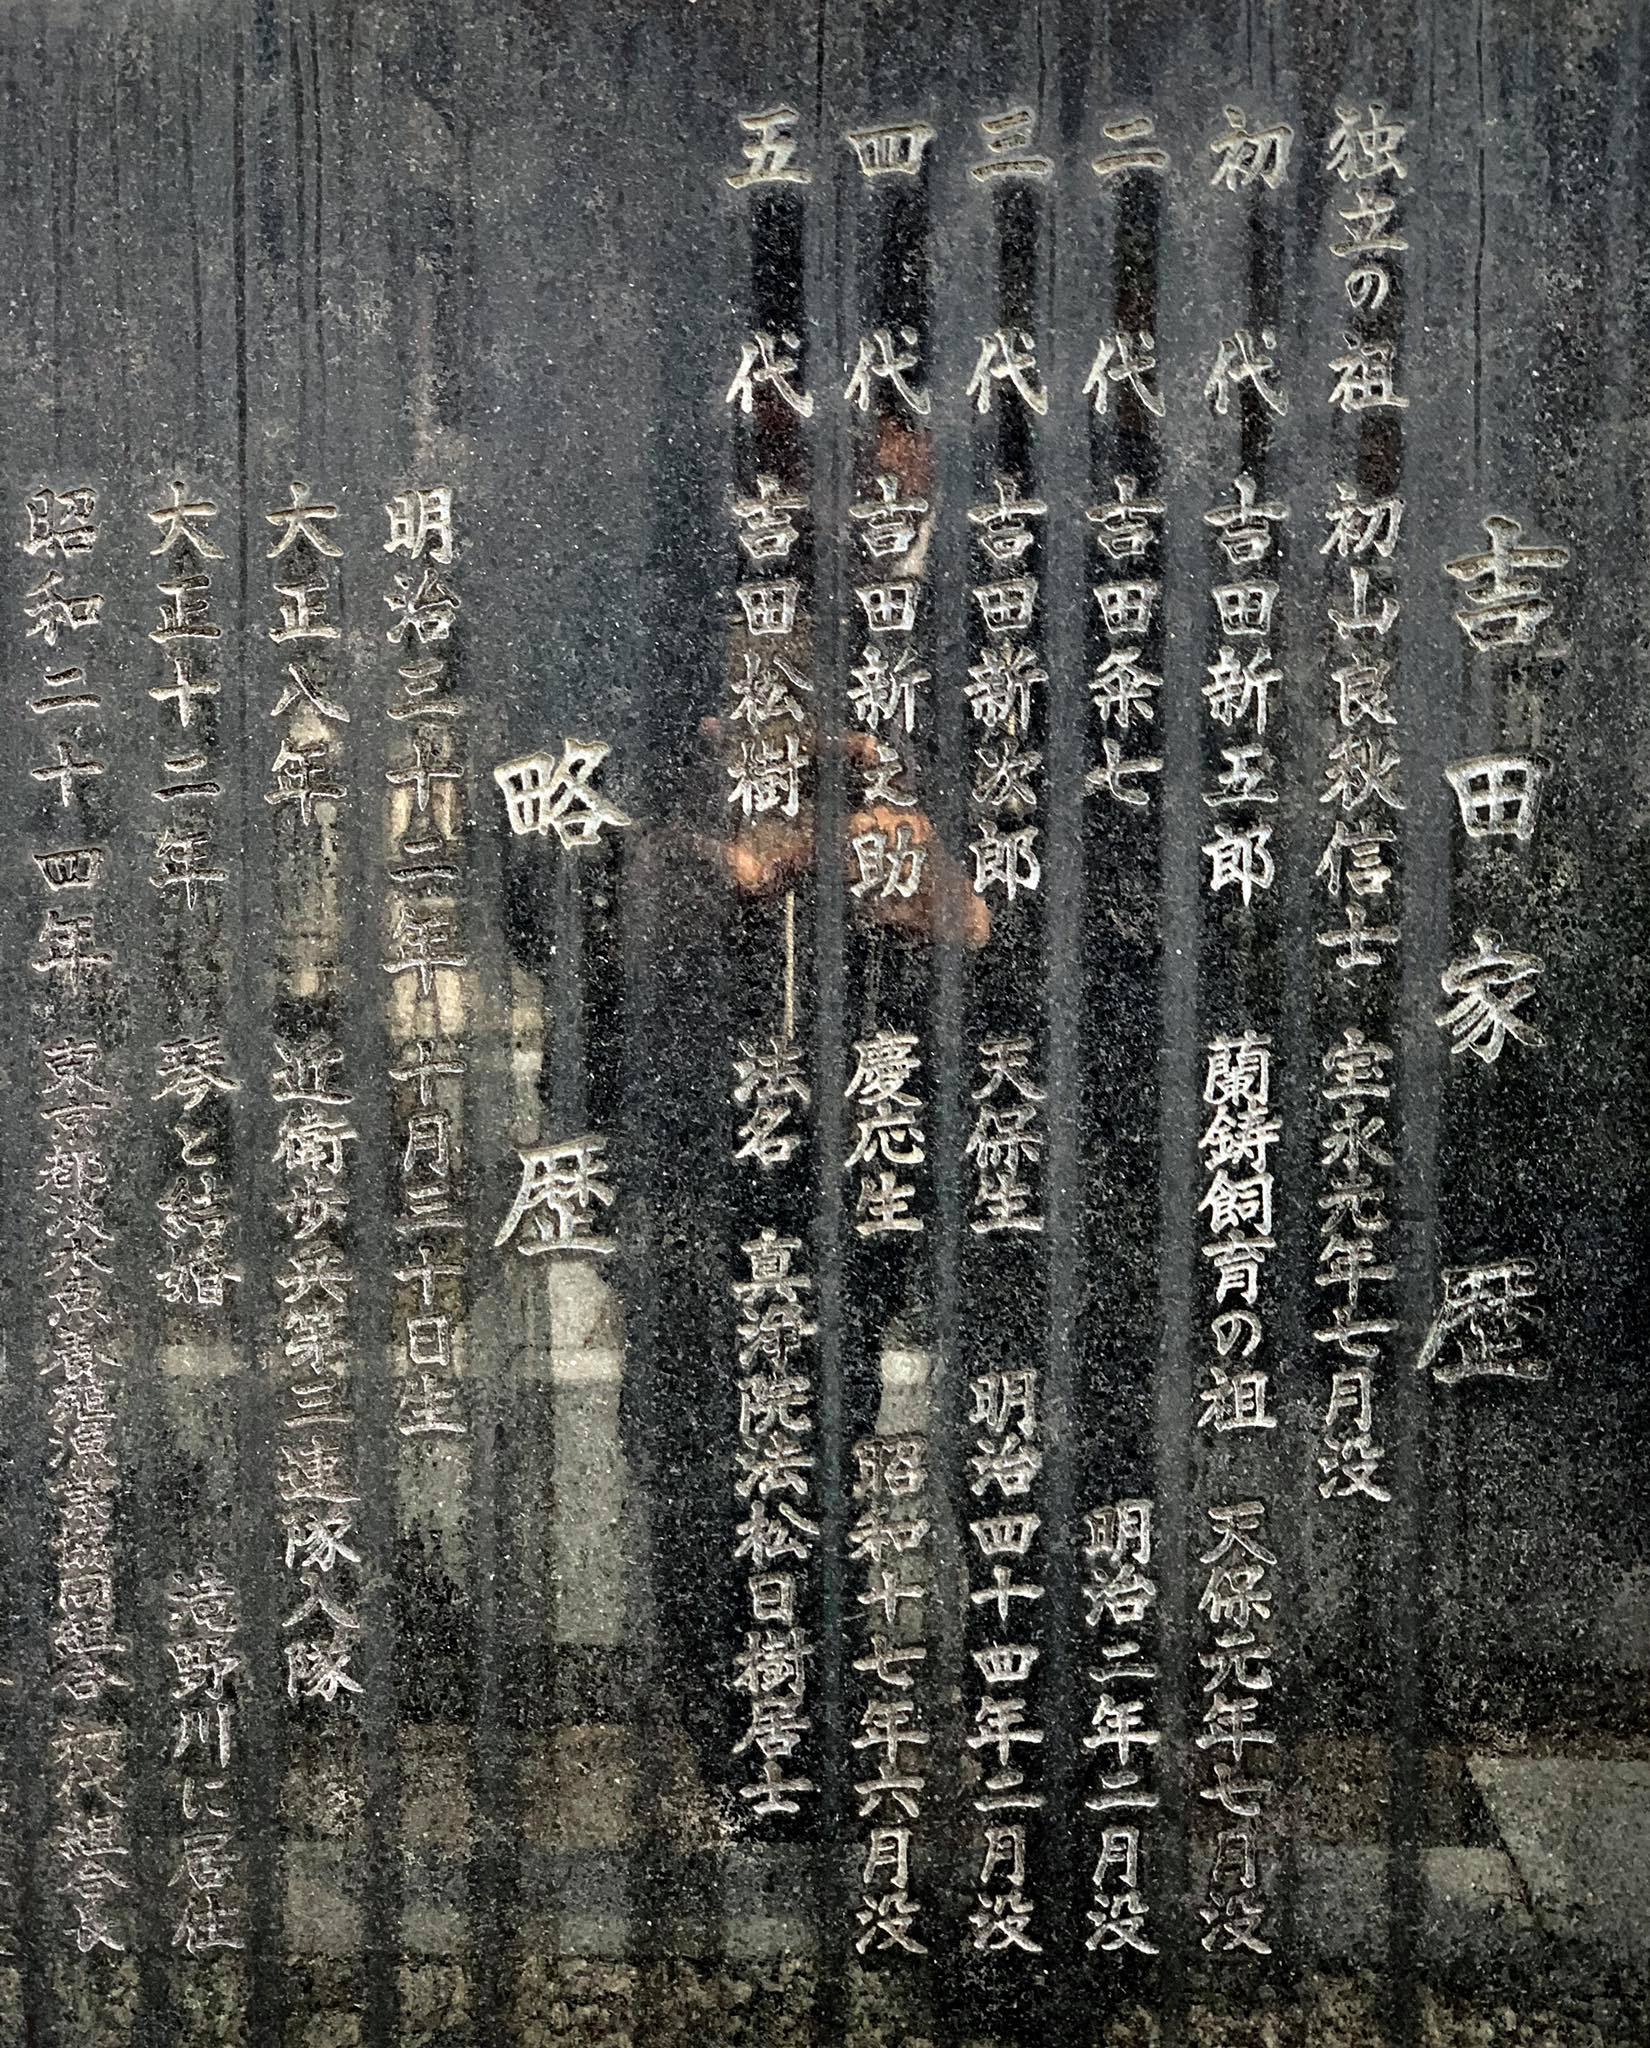 吉田家歴
独立の祖 初山良秋信士 宝永元年七月没
初代 吉田新五郎 蘭鋳飼育の祖 天保元年七月没
二代 吉田粂七 明治二年二月没
三代 吉田新次郎 天保生 明治四十四年二月没
四代 吉田新之助 慶応生 昭和十七年六月没
五代 吉田松樹 法名 真浄院法松日樹居士
略歴
明治三十二年十月三十日生
大正八年 近衛歩兵第三連隊入隊
大正十二年 琴と結婚 滝野川に居住
昭和二十四年 東京都淡水魚養殖漁業協同組合 初代組合長